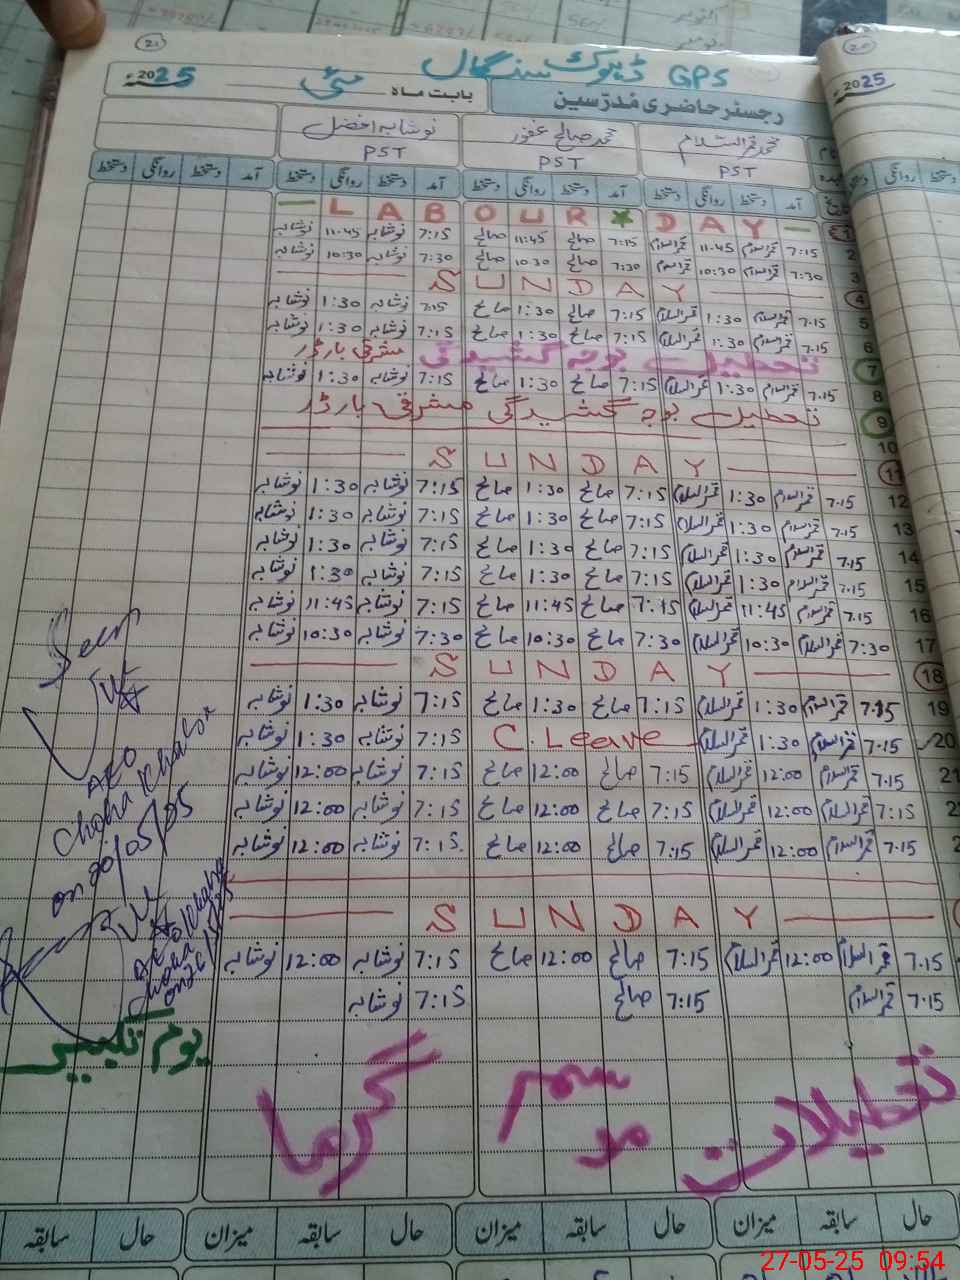 21
20
GPS ڈہوک سنگھال
رجسٹر حاضری مُدرّسین بابت ماہ مئی 2025
2025
محمد قمر السلام محمد صالح غفور نوشابہ افضل
PST PST PST
آمد دستخط روانگی دستخط آمد دستخط روانگی دستخط آمد دستخط روانگی دستخط آمد دستخط روانگی دستخط
1 — LABOUR ★ DAY —
2 7:15 قمر السلام 11:45 قمر السلام 7:15 صالح 11:45 صالح 7:15 نوشابہ 11:45 نوشابہ
3 7:30 قمر السلام 10:30 قمر السلام 7:30 صالح 10:30 صالح 7:30 نوشابہ 10:30 نوشابہ
4 SUNDAY
5 7.15 قمر السلام 1:30 قمر السلام 7:15 صالح 1:30 صالح 7:15 نوشابہ 1:30 نوشابہ
6 7.15 قمر السلام 1:30 قمر السلام 7:15 صالح 1:30 صالح 7:15 نوشابہ 1:30 نوشابہ
7 تعطیل بوجہ کشیدگی مشرقی بارڈر
8 7.15 قمر السلام 1:30 قمر السلام 7:15 صالح 1:30 صالح 7:15 نوشابہ 1:30 نوشابہ
9 تعطیل بوجہ کشیدگی مشرقی بارڈر
10
11 SUNDAY
12 7.15 قمر السلام 1:30 قمر السلام 7:15 صالح 1:30 صالح 7:15 نوشابہ 1:30 نوشابہ
13 7.15 قمر السلام 1:30 قمر السلام 7:15 صالح 1:30 صالح 7:15 نوشابہ 1:30 نوشابہ
14 7.15 قمر السلام 1:30 قمر السلام 7:15 صالح 1:30 صالح 7:15 نوشابہ 1:30 نوشابہ
15 7.15 قمر السلام 1:30 قمر السلام 7:15 صالح 1:30 صالح 7:15 نوشابہ 1:30 نوشابہ
16 7.15 قمر السلام 11:45 قمر السلام 7:15 صالح 11:45 صالح 7:15 نوشابہ 11:45 نوشابہ
17 7:30 قمر السلام 10:30 قمر السلام 7:30 صالح 10:30 صالح 7:30 نوشابہ 10:30 نوشابہ
18 SUNDAY
19 7.15 قمر السلام 1:30 قمر السلام 7:15 صالح 1:30 صالح 7:15 نوشابہ 1:30 نوشابہ
20 7.15 قمر السلام 1:30 قمر السلام C. Leave 7:15 نوشابہ 1:30 نوشابہ
21 7.15 قمر السلام 12:00 قمر السلام 7:15 صالح 12:00 صالح 7:15 نوشابہ 12:00 نوشابہ
7:15 قمر السلام 12:00 قمر السلام 7:15 صالح 12:00 صالح 7:15 نوشابہ 12:00 نوشابہ
7.15 قمر السلام 12:00 قمر السلام 7:15 صالح 12:00 صالح 7:15 نوشابہ 12:00 نوشابہ
SUNDAY
7.15 قمر السلام 12:00 قمر السلام 7:15 صالح 12:00 صالح 7:15 نوشابہ 12:00 نوشابہ
7.15 قمر السلام 7:15 صالح 7:15 نوشابہ
Seen
AEO
Choha Khalsa
on 20/05/25
AEO Khalsa
Choha
یوم تکبیر
تعطیلات موسم گرما
حال سابقہ میزان حال سابقہ میزان حال سابقہ میزان حال سابقہ
27-05-25 09:54